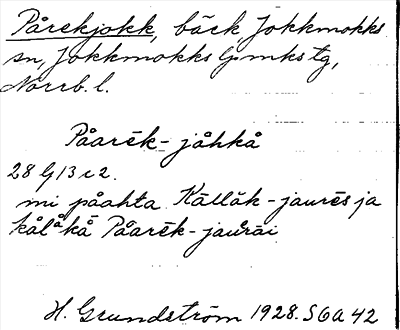 Pårekjokk, bäck, Jokkmokks
sn, Jokkmokks lpmks tg,
Norrb. l.
Påarēk-jåhkå
28 G 13 c 2.
mi påahta Kāllåk-jaurēs ja
kålåkå Påarēk-jaurai
H. Grundström 1928. S 6a 42